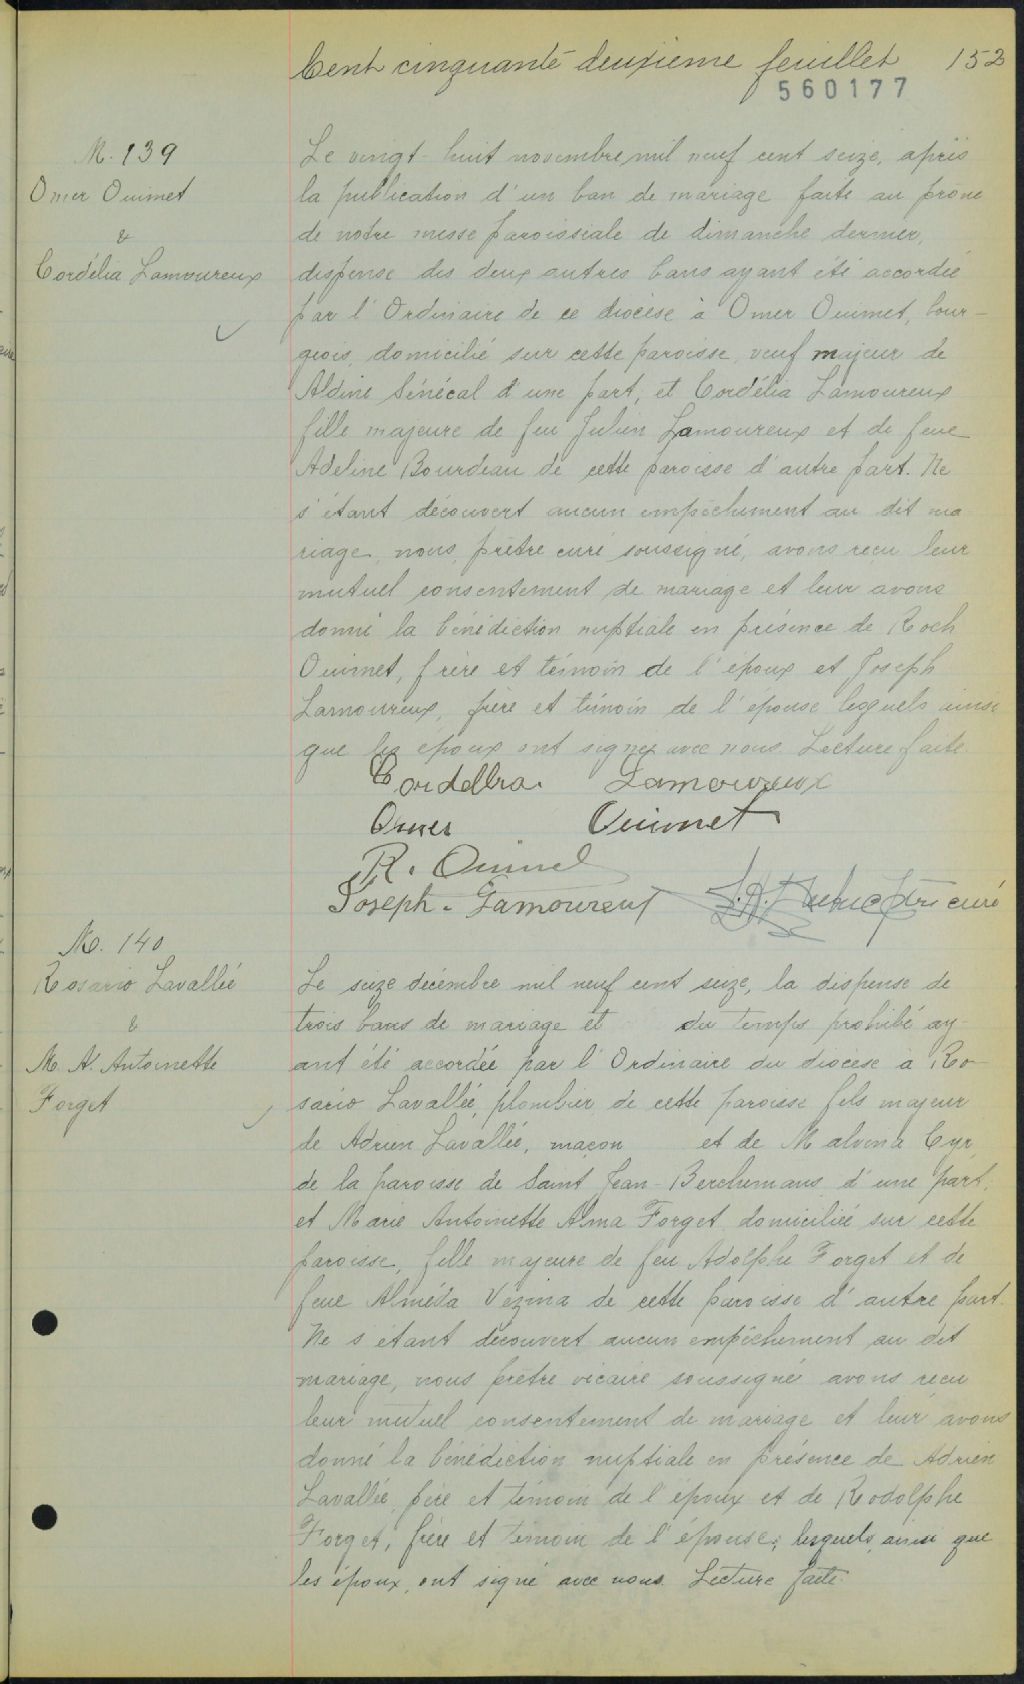 Cent cinquante deuxième feuillet 152
560177
M. 139
Omer Ouimet
&
Cordélia Lamoureux
Le vingt-huit novembre, mil neuf cent seize, après
la publication d'un ban de mariage faite au prône
de notre messe paroissiale de dimanche dernier,
dispense des deux autres bans ayant été accordée
par l'Ordinaire de ce diocèse à Omer Ouimet, bour-
geois, domicilié sur cette paroisse, veuf majeur de
Aldine Sénécal d'une part, et Cordélia Lamoureux
fille majeure de feu Julien Lamoureux et de feue
Adeline Bourdeau de cette paroisse d'autre part. Ne
s'étant découvert aucun empêchement au dit ma
riage, nous, prêtre curé soussigné, avons reçu leur
mutuel consentement de mariage et leur avons
donné la bénédiction nuptiale en présence de Roch
Ouimet, frère et témoin de l'époux et Joseph
Lamoureux, frère et témoin de l'épouse lesquels ainsi
que les époux ont signé avec nous. Lecture faite.
Lamoureux
Omer Ouimet
R. Ouimet
Joseph. Lamoureux ptre curé
M. 140
Rosario Lavallée
&
M. A. Antoinette
Forget
Le seize décembre mil neuf cent seize, la dispense de
trois bans de mariage et du temps prohibé ay-
ant été accordée par l'Ordinaire du diocèse à Ro-
sario Lavallée, plombier, de cette paroisse fils majeur
de Adrien Lavallée, maçon et de Malvina Cyr,
de la paroisse de Saint Jean-Berchemans d'une part,
et Marie Antoinette Alma Forget domiciliée sur cette
paroisse, fille majeure de feu Adolphe Forget et de
feue Alméda Vézina de cette paroisse d'autre part.
Ne s'étant découvert aucun empêchement au dit
mariage, nous prêtre vicaire soussigné avons reçu
leur mutuel consentement de mariage et leur avons
donné la bénédiction nuptiale en présence de Adrien
Lavallée, père et témoin de l'époux et de Rodolphe
Forget, frère et témoin de l'épouse; lesquels, ainsi que
les époux, ont signé avec nous. Lecture faite.